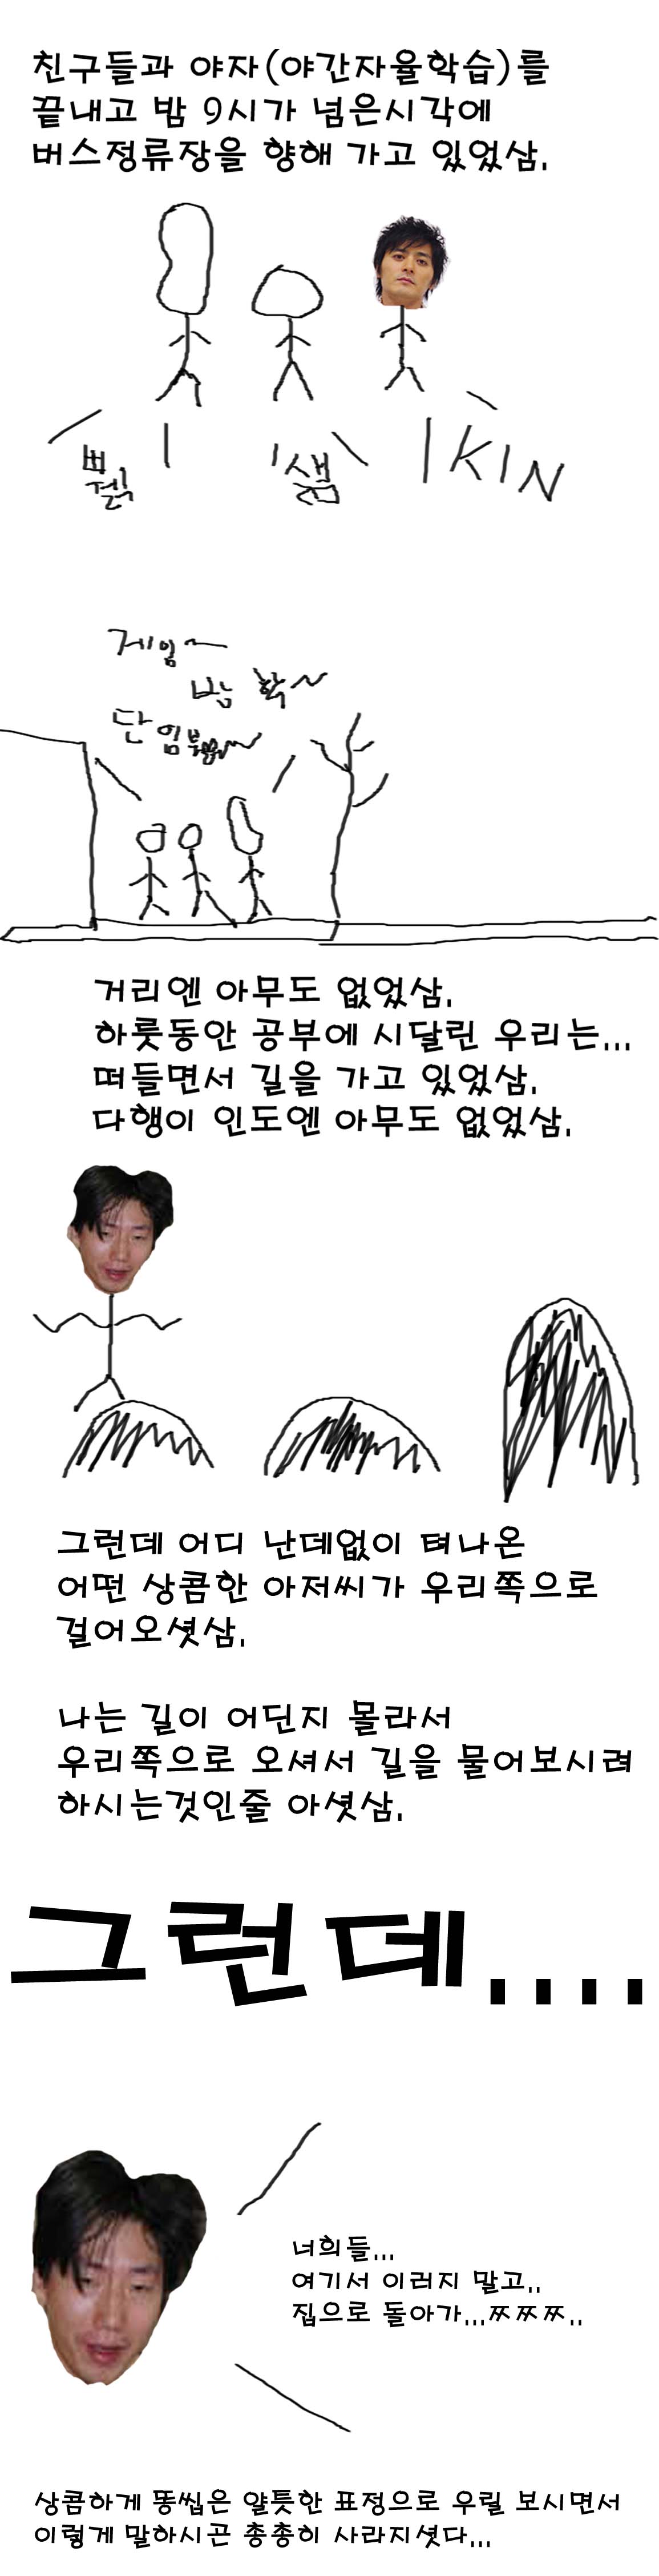 친구들과 야자(야간자율학습)를
끝내고 밤 9시가 넘은시각에
버스정류장을 향해 가고 있었삼.
뷁
젥
샘
KIN
게임~
방학~
단임
거리엔 아무도 없었삼.
하룻동안 공부에 시달린 우리는...
떠들면서 길을 가고 있었삼.
다행이 인도엔 아무도 없었삼.
그런데 어디 난데없이 텨나온
어떤 상콤한 아저씨가 우리쪽으로
걸어오셧삼.
나는 길이 어딘지 몰라서
우리쪽으로 오셔서 길을 물어보시려
하시는것인줄 아셧삼.
그런데....
너희들...
여기서 이러지 말고..
집으로 돌아가...ㅉㅉㅉ..
상콤하게 똥씹은 얄틋한 표정으로 우릴 보시면서
이렇게 말하시곤 총총히 사라지셧다...